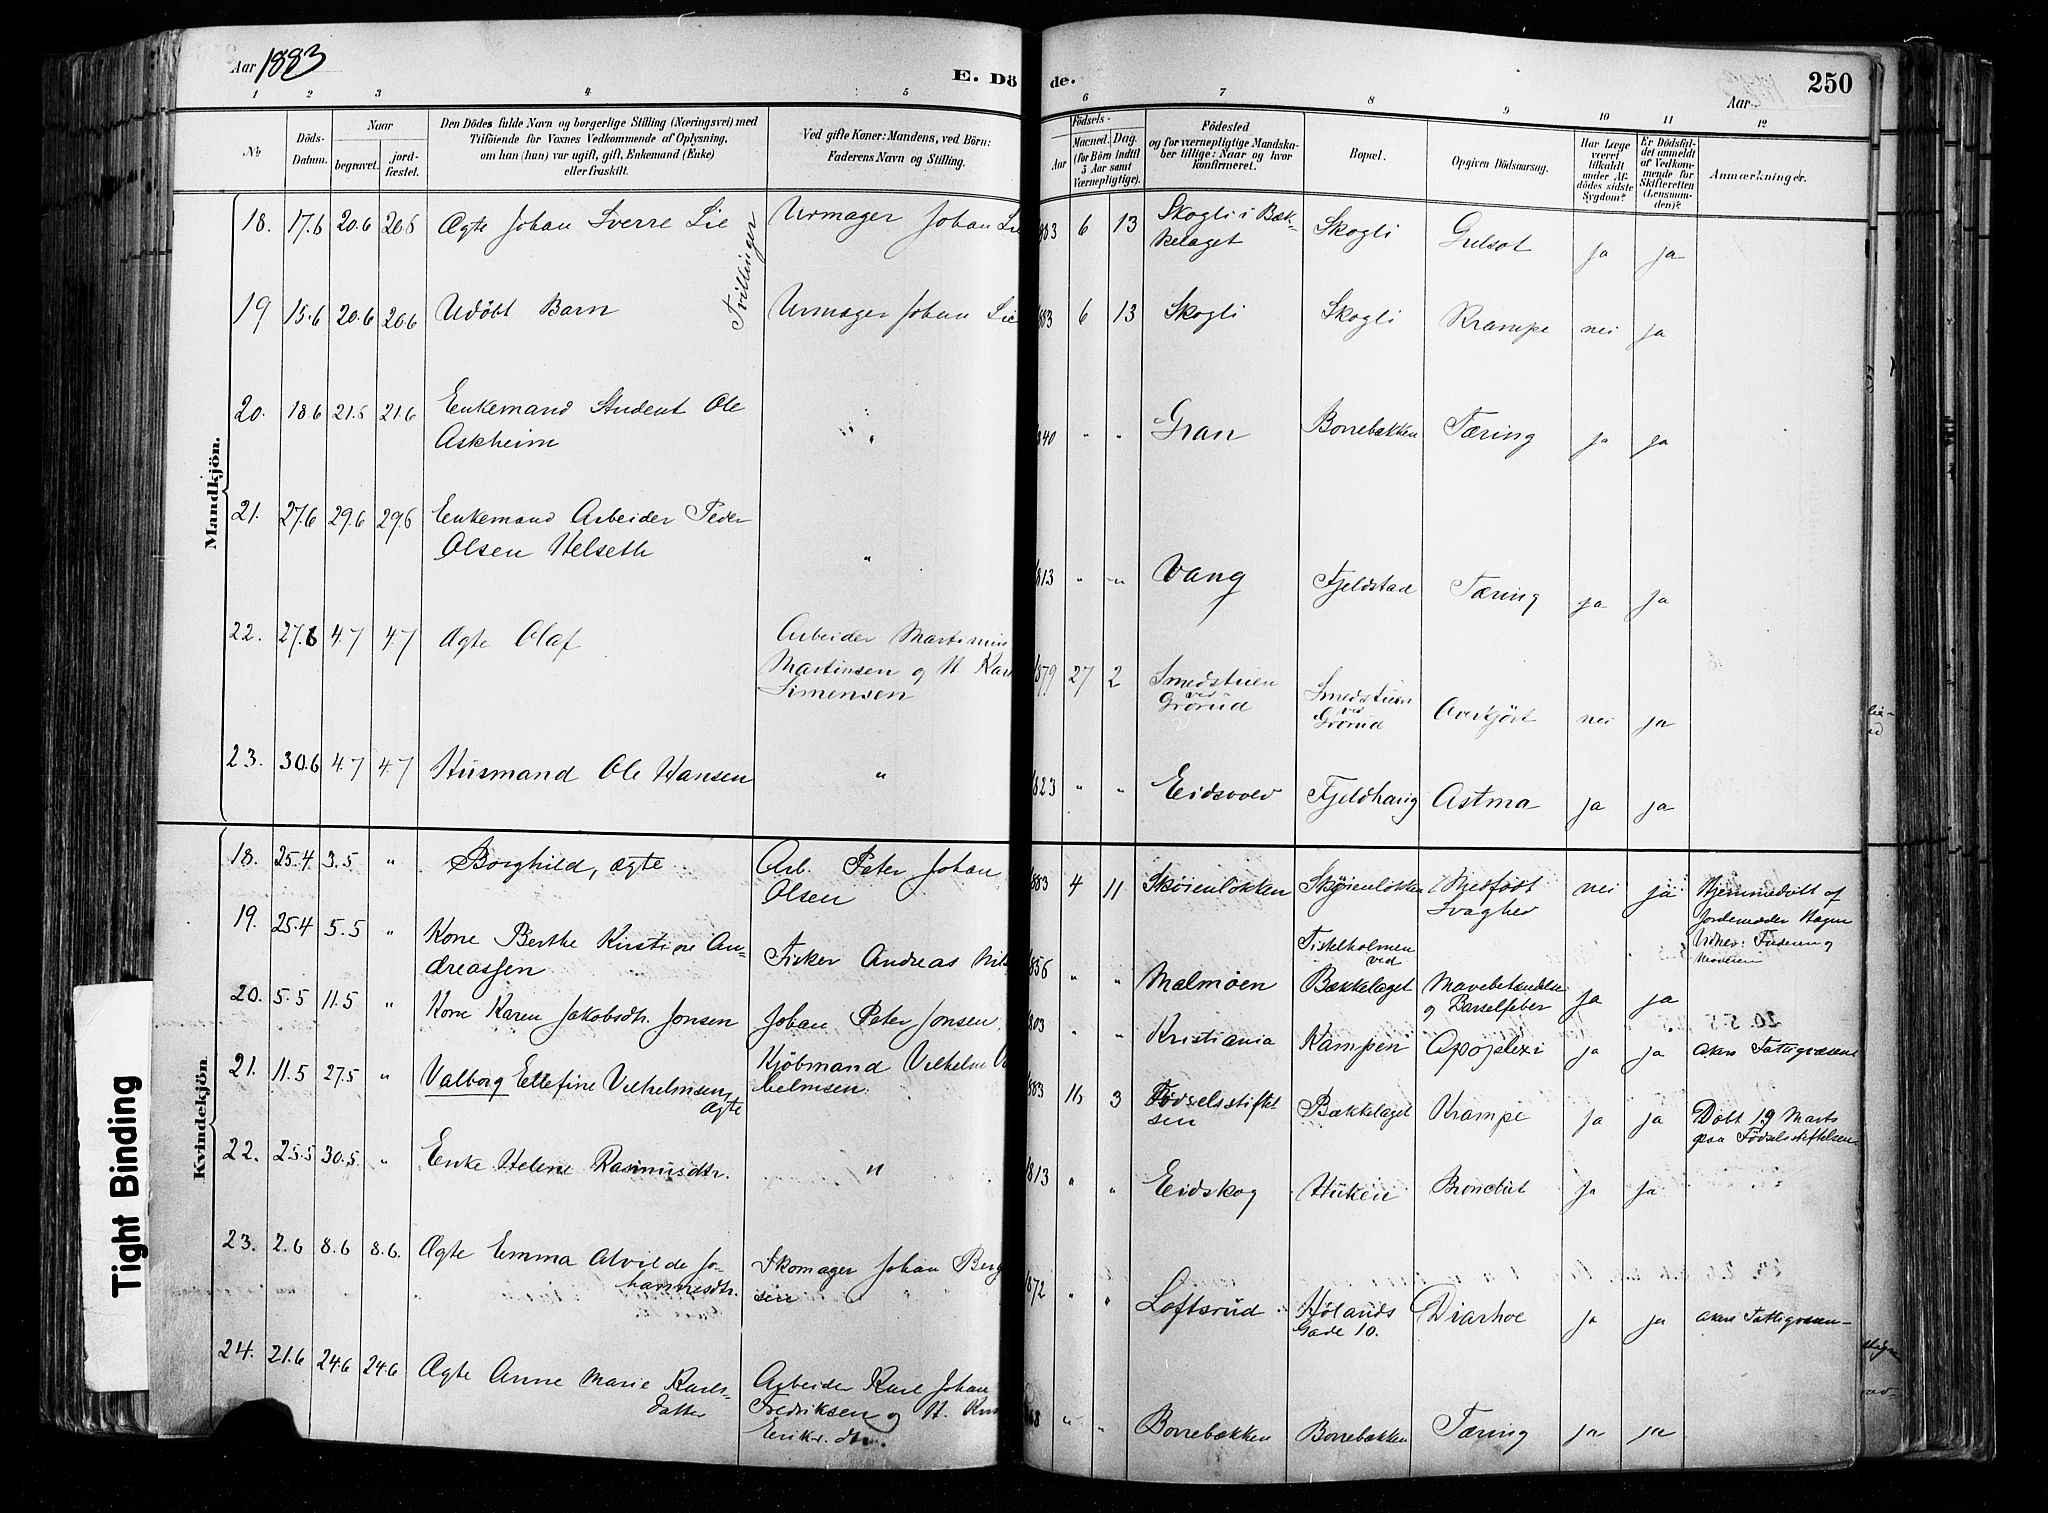 Aar 1883
E. Döde.
Aar
250
1 2 3 4 5 6 7 8 9 10 11 12
№
Döds-Datum.
Naar
begravet.
jord-fæstet.
Den Dödes fulde Navn og borgerlige Stilling (Næringsvei) med
Tilföiende for Voxnes Vedkommende af Oplysning,
om han (hun) var ugift, gift, Enkemand (Enke)
eller fraskilt.
Ved gifte Koner: Mandens, ved Börn:
Faderens Navn og Stilling.
Födsels-
Aar
Maaned. Dag.
(for Börn indtil
5 Aar samt
Værnepligtige).
Födested
og for værnepligtige Mandska-
ber tillige: Naar og hvor
konfirmeret.
Bopæl.
Opgiven Dödsaarsag.
Har Læge
været
tilkaldt
under Af-
dödes sidste
Sygdom?
Er Dödsfal-
det anmeldt
af Vedkom-
mende for
Skifteretten
(Lensman-
den)?
Anmærkninger.
Mandkjön.
18. 17.6 20.6 20.6 Ægte Johan Sverre Lie Urmager Johan Lie 883 6 13 Skogli i Bæk-
kelaget Skogli Gulsot ja ja
Tvillinger
19 15.6 20.6 20.6 Udöbt Barn Urmager Johan Lie 883 6 13 Skogli Skogli Krampe nei ja
20. 18.6 21.5 21.6 Enkemand Student Ole
Askheim " 840 " " Gran Borrebækken Tæring ja ja
21. 27.6 29.6 29.6 Enkemand Arbeider Peder
Olsen Helseth " 1813 " " Vang Fjeldstad Tæring ja ja
22. 27.6 4.7 4.7 Ægte Olaf Arbeider Martinius
Martinsen og H. Kar
Simensen 1879 27 2 Smedstuen
ved
Grorud Smedstuen
ved
Grorud Overkjört nei ja
23. 30.6 4.7 4.7 Husmand Ole Hansen " 1823 " " Eidsvold Fjeldhaug Astma ja ja
Kvindekjön
18. 25.4 3.5 " Borghild, ægte Arb. Peter Johan
Olsen 883 4 11 Skøienløkken Skøienløkken Medfödt
Svaghed nei ja Hjemmedöbt af
Jordemoder Hagen
Vidner: Faderen og
Moderen
19. 25.4 5.5 " Kone Berthe Kirstine An-
dreassen Fisker Andreas Nils 856 " " Malmøen Fiskeholmen
ved
Bækkelaget Mavebetændelse
og Barselfeber ja ja
20. 5.5 11.5 " Kone Karen Jakobsdtr. Jonsen Johan Peter Jonsen 803 " " Kristiania Kampen Apoplexi ja ja Akers Fattigvæsen
21. 11.5 27.5 " Valborg Ellefine Vilhelmsen,
ægte Kjöbmand Vilhelm V
helmsen. 883 3 Födselsstiftel
sen Bækkelaget Krampe ja ja Döbt 19 Marts
paa Födselsstiftelsen
22. 25.5 30.5 " Enke Helene Rasmusdtr. " 1813 " " Eidskog Huken Bronchit ja ja
23. 2.6 8.6 8.6. Ægte Emma Alvilde Jo-
hannesdtr. Skomager Johan Berg
sen 1872 " " Loftsrud Hølands
Gade 10. Diarhoe ja ja Akers Fattigvæsen
24. 21.6 24.6 24.6 Ægte Anne Marie Karls-
datter Arbeider Karl Johan
Fredriksen og H.
Eriksdtr. 868 " " Borrebækken Borrebækken Tæring ja ja
Tight Binding